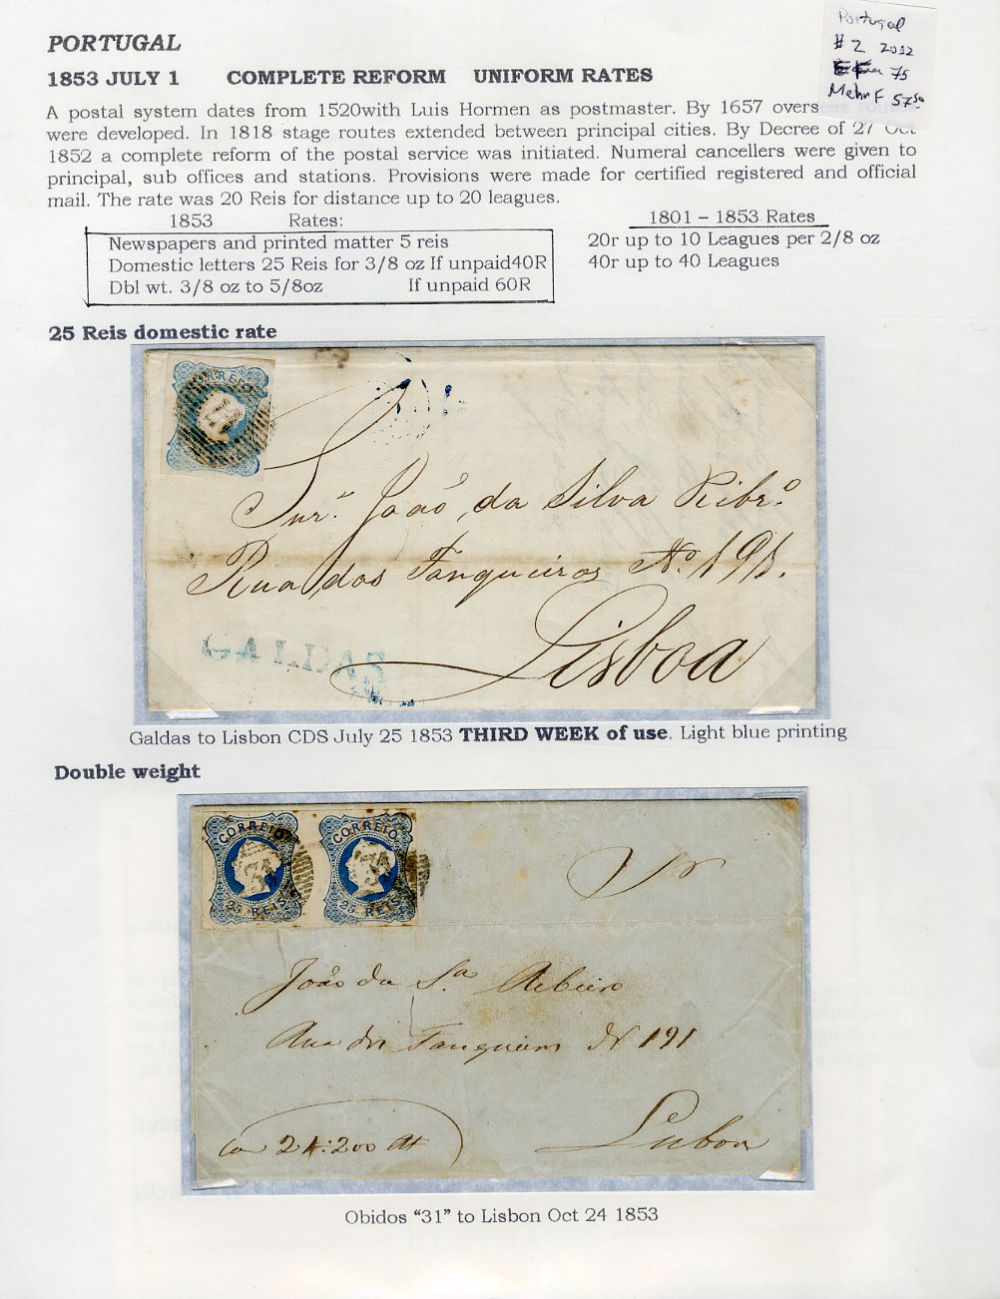 Portugal
# 2 2012
75
Mehr F 57 50
PORTUGAL
1853 JULY 1 COMPLETE REFORM UNIFORM RATES
A postal system dates from 1520with Luis Hormen as postmaster. By 1657 overs
were developed. In 1818 stage routes extended between principal cities. By Decree of 27 Oct
1852 a complete reform of the postal service was initiated. Numeral cancellers were given to
principal, sub offices and stations. Provisions were made for certified registered and official
mail. The rate was 20 Reis for distance up to 20 leagues.
1853 Rates:
Newspapers and printed matter 5 reis
Domestic letters 25 Reis for 3/8 oz If unpaid40R
Dbl wt. 3/8 oz to 5/8oz If unpaid 60R
1801 – 1853 Rates
20r up to 10 Leagues per 2/8 oz
40r up to 40 Leagues
25 Reis domestic rate
CORREIO
Snr. João da Silva Ribro
Rua dos Fanqueiros No. 191.
Lisboa
CALDAS
Galdas to Lisbon CDS July 25 1853 THIRD WEEK of use. Light blue printing
Double weight
CORREIO CORREIO
25 REIS 25 REIS
Sr
João da Sa Ribeiro
Rua dos Fanqueiros N 191
Lisboa
Obidos “31” to Lisbon Oct 24 1853